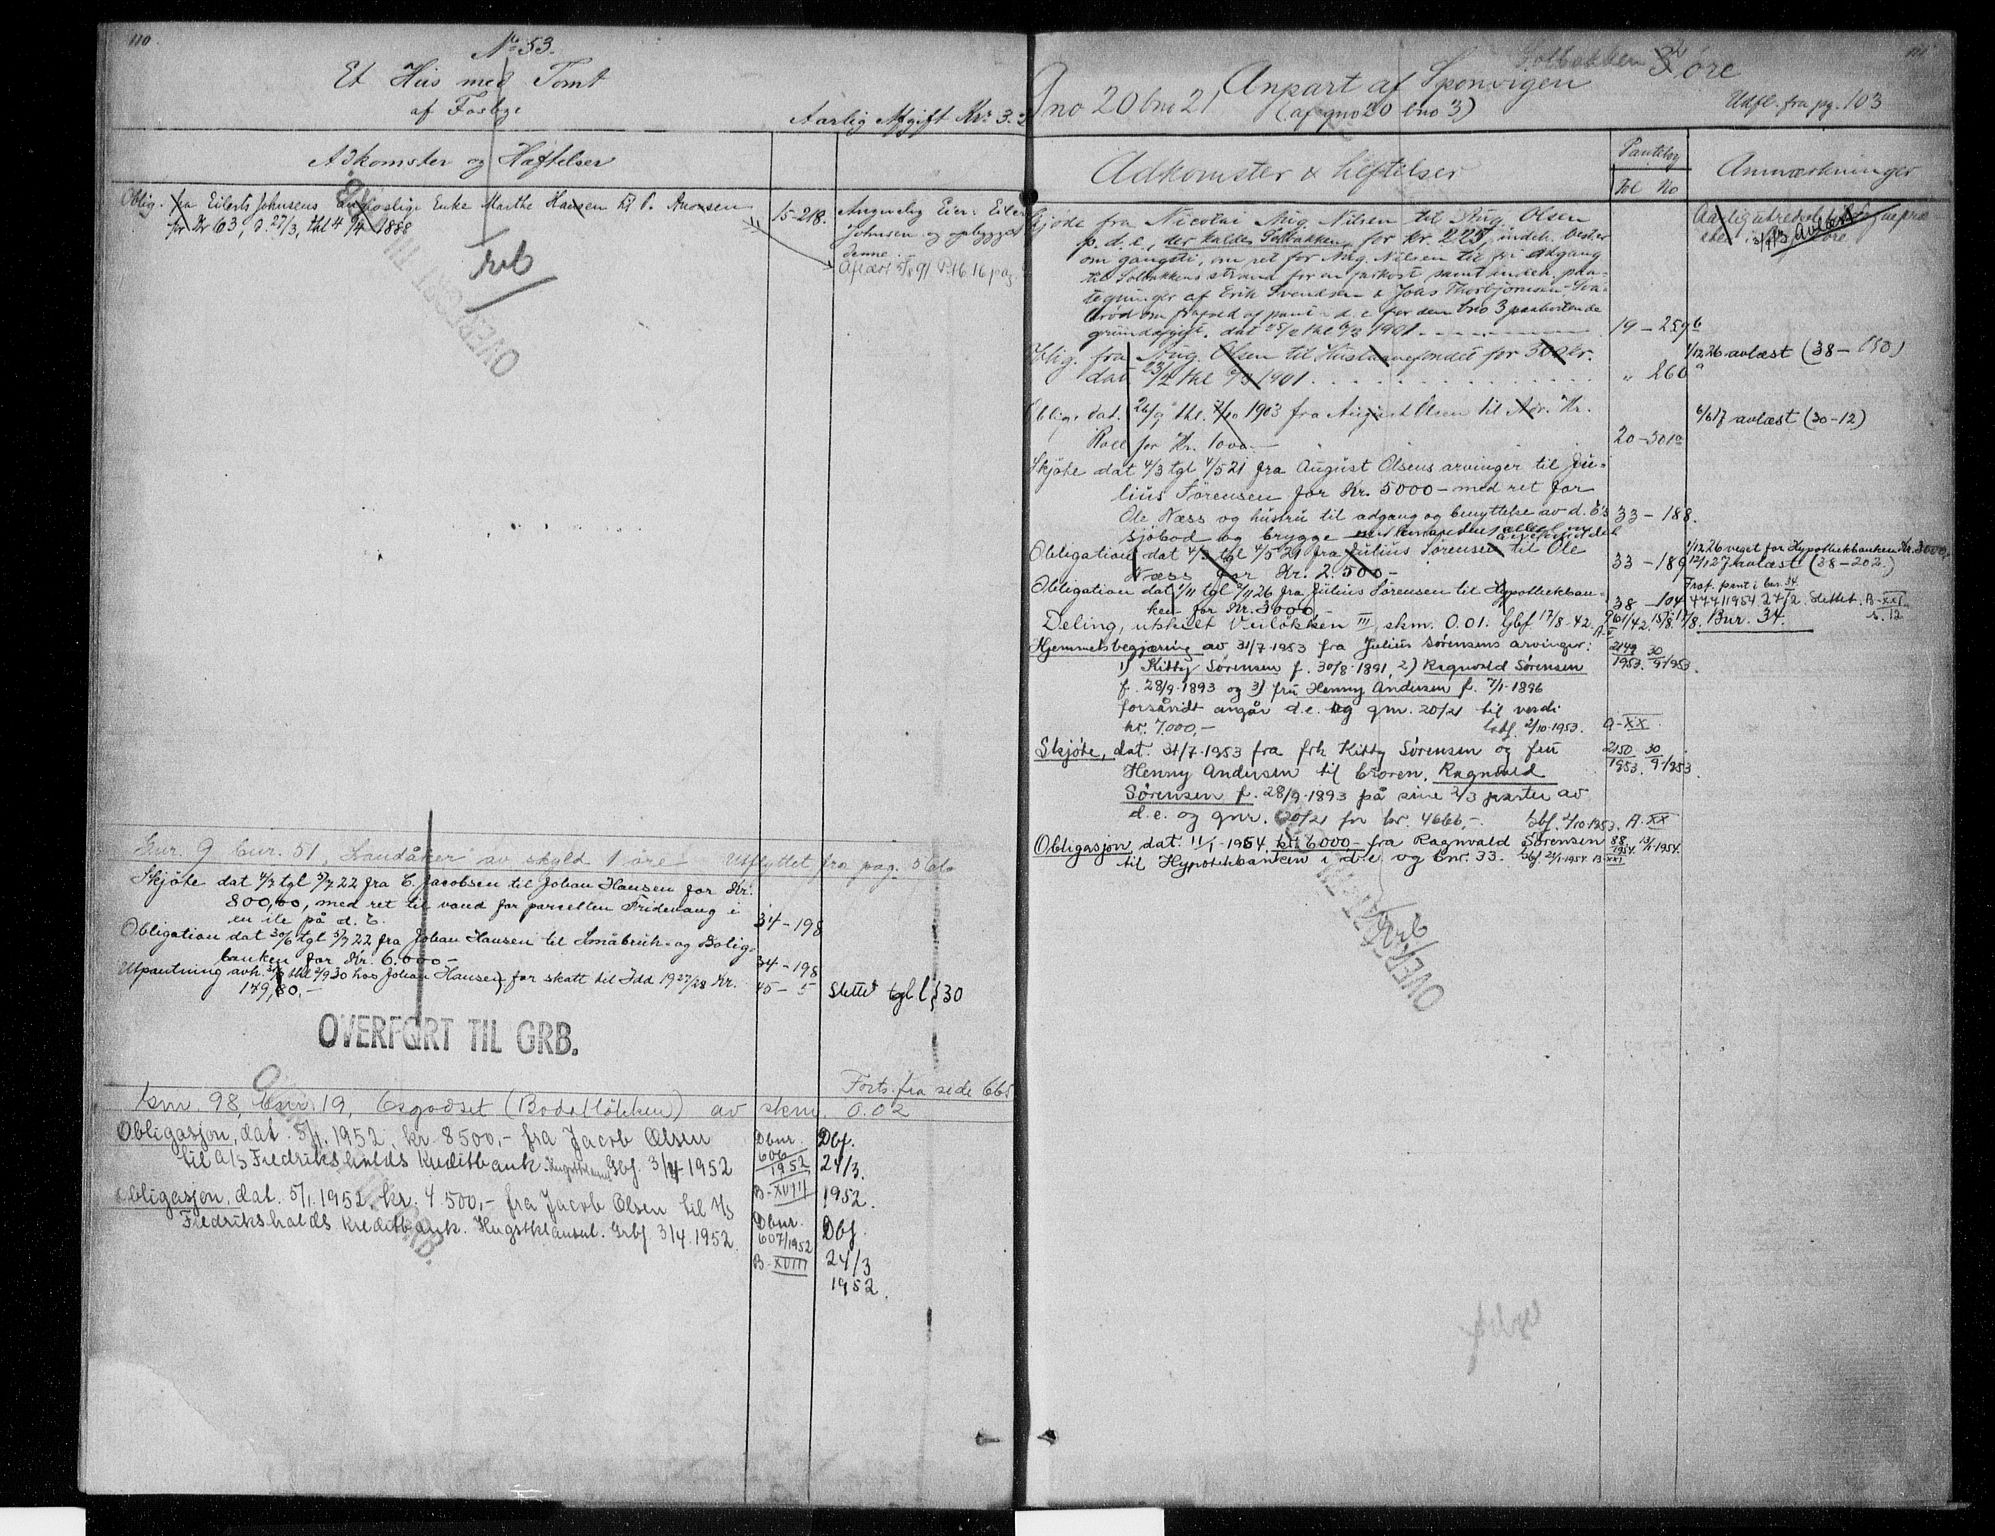 110.
No 53.
Et Hus med Tomt
af Fosbye
Aarlig Afgift Kr. 3.2
Adkomster og Hæftelser
Oblig. fra Eilerts Johnsens Enke Marthe Hansen til P.
for Kr 63, d. 27/3, thl 4 1888
15-218.
Angivelig Eier: Eilert
Johnsen og opbygget
denne.
Aflæst 5/8 91 P. 16 16 pag
Grb
OVERFØRT TIL GRB.
Gnr. 9 bnr. 51, Landåker av skyld 1 øre Utflyttet fra pag.
Skjøte dat 4/7 tgl 5/7 22 fra C. Jacobsen til Johan Hansen for Kr.
800,00, med ret til vand for parsellen Fridevang i
en ile på d. E.
34-198
Obligation dat 30/6 tgl 5/7 22 fra Johan Hansen til Småbruk- og Bolig-
banken for Kr. 6.000-
34-198
Utpantning avh. thl 2/9 30 hos Johan Hansen for skatt til Idd 1927/28 Kr.
149,80.-
45-5
Slettet tgl
OVERFØRT TIL GRB.
Forts. fra side 665
Gnr. 98, bnr. 19, Esgodset (Bodalløkken) av skm. 0.02
Obligasjon, dat. 5/1. 1952, kr. 8500,- fra Jacob Olsen
til A/S Fredrikshalds Kreditbank. Gbf. 3/4 1952
Dbnr.
606
1952
B-XVIII
Dbf.
24/3.
1952.
Obligasjon, dat. 5/1. 1952, kr. 4 500,- fra Jacob Olsen til A/S
Fredrikshalds Kreditbank. Hugstklausul. Grbf 3/4. 1952.
Dbnr.
607/1952
B-XVIII
Dbf.
24/3
1952.
111
Solbakken 2 øre
Gno 20 bno 21 Anpart af Sponvigen
(af gno 20 bno 3)
Udfl. fra pg. 103
Adkomster & Heftelser
Pantebog
Fol No
Anmærkninger
Skjøde fra Nicolai Aug. Nilsen til Aug. Olsen
p. d. e., der kaldes Solbakken, for kr. 225, indeh. best.er
om gangsti, om ret for Aug. Nilsen til fri adgang
til Solbakkens strand for en farkost samt indeh. paa-
tegninger af Erik Svendsen & Johs Thorbjørnsen Sva-
brød om frafald af pant i d. e. for den bno 3 paahvilende
grundafgift. dat 25/2 thl 6/3 1901.
19-259b
Oblig. fra Aug. Olsen til Husløsefondet for 300 kr.
dat 23/2 thl 6/3 1901
" 260a
1/12 26 avlæst (38-150)
Oblig. dat. 26/9 thl. 2/10 1903 fra August Olsen til Kr.
Roll for Kr. 1000.-
20-301a
6/6 17 avlæst (30-12)
Skjøte dat 4/3 tgl 4/5 21 fra August Olsens arvinger til Ju-
lius Sørensen for Kr. 5000- med ret for
Ole Næss og hustru til adgang og benyttelse av d. E's
sjøbod og brygge
33-188.
Obligation dat 4/3 tgl 4/5 21 fra Julius Sørensen til Ole
Næss for Kr. 2.500-
33-189
1/12 26 veget for Hypothekbanken Kr. 3000.
12/12 avlæst (38-202.)
Obligation dat 1/11 tgl 2/11 26 fra Julius Sørensen til Hypothekban-
ken for Kr. 3000,-
38-104
Fraf. pant i bnr. 34.
Slettet. B-XXI
Deling, utskilt Veiløkken III, skm. 0.01. Gbf 17/8-42.
961/42. 15/8.
17/8. Bnr. 34.
Hjemmelsbegjæring av 31/7 1953 fra Julius Sørensens arvinger:
1) Kitty Sørensen f. 30/8-1891, 2) Ragnvald Sørensen
f. 28/9-1893 og 3) fru Henny Andersen f. 7/1-1896
forsåvidt angår d.e. og gnr. 20/21 til verdi
kr. 7.000,- Gbf. 2/10-1953.
2149
1953. 30/9-1953.
A-XX
Skjøte, dat. 31/7-1953 fra frk Kitty Sørensen og fru
Henny Andersen til broren, Ragnvald
Sørensen f. 28/9-1893 på sine 2/3 parter av
d.e. og gnr. 20/21 for kr. 4666,- Gbf. 2/10 1953. A-XX
2150
1953. 30/9-1953.
Obligasjon, dat. 11/1-1954, kr. 6000- fra Ragnvald Sørensen
til Hypotekbanken i d.e og bnr. 33. Gbf 21/1-1954 B-XXI
88
1954. 13/1-1954.
OVERFØRT TIL GRB.
Grb